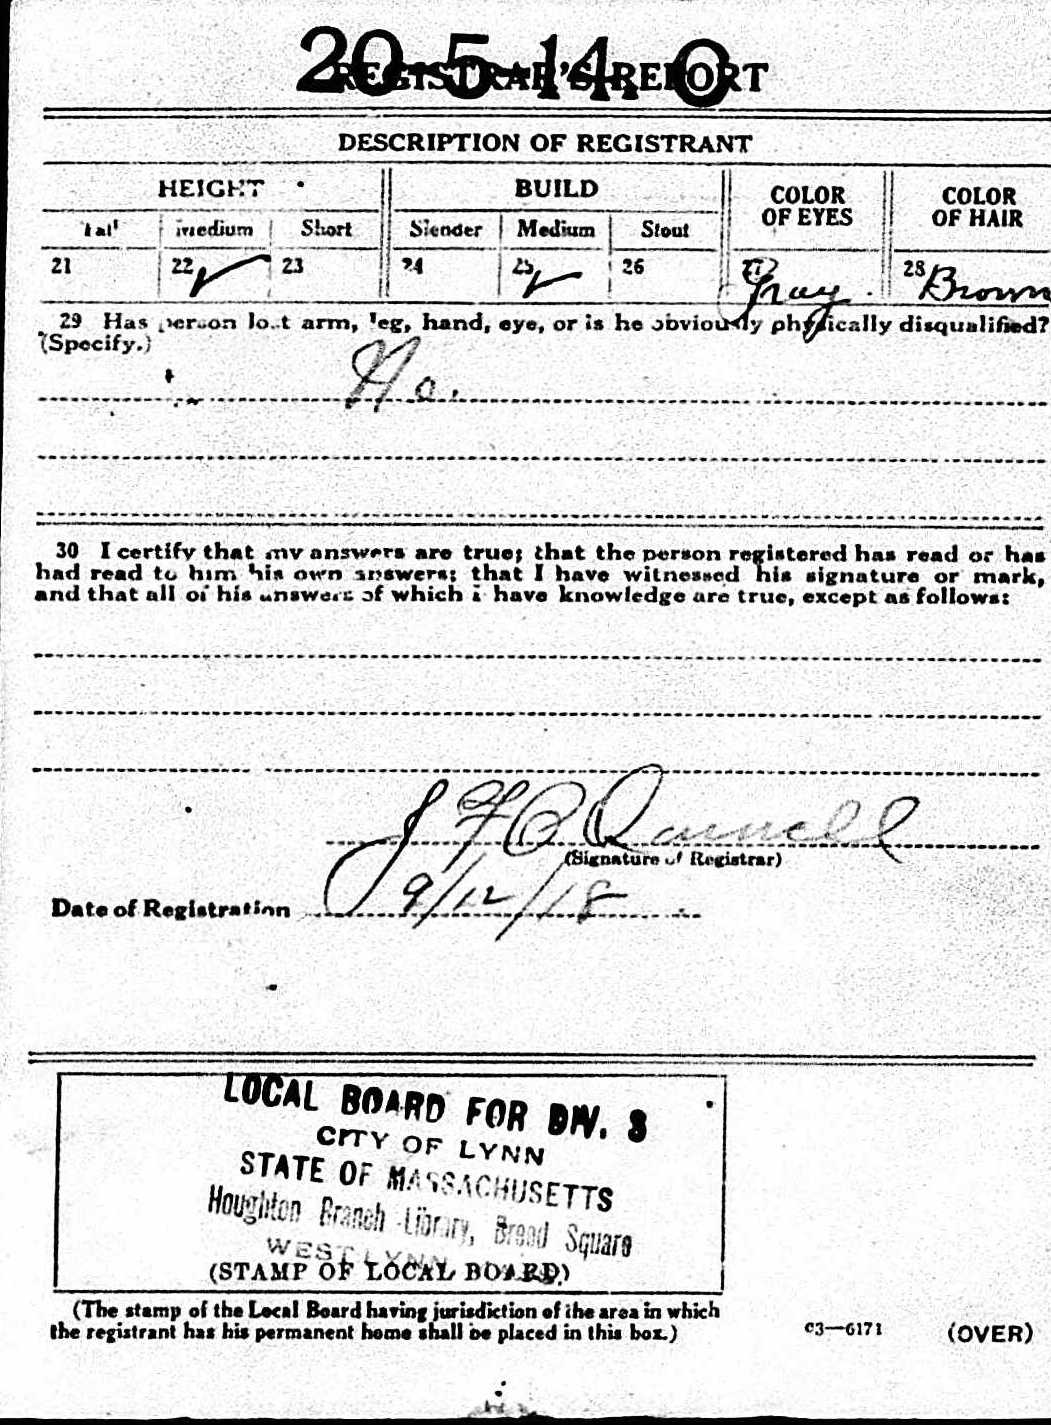 20-5-14. O
REGISTRAR'S REPORT
DESCRIPTION OF REGISTRANT
HEIGHT BUILD COLOR OF EYES COLOR OF HAIR
Tall Medium Short Slender Medium Stout
21 22 ✓ 23 24 25 ✓ 26 27 Gray 28 Brown
29 Has person lost arm, leg, hand, eye, or is he obviously physically disqualified?
(Specify.)
No.
30 I certify that my answers are true; that the person registered has read or has
had read to him his own answers; that I have witnessed his signature or mark,
and that all of his answers of which I have knowledge are true, except as follows:
J F
(Signature of Registrar)
Date of Registration 9/12/18
LOCAL BOARD FOR DIV. 3
CITY OF LYNN
STATE OF MASSACHUSETTS
Houghton Branch Library, Breed Square
WEST LYNN
(STAMP OF LOCAL BOARD)
(The stamp of the Local Board having jurisdiction of the area in which
the registrant has his permanent home shall be placed in this box.)
03—6171 (OVER)